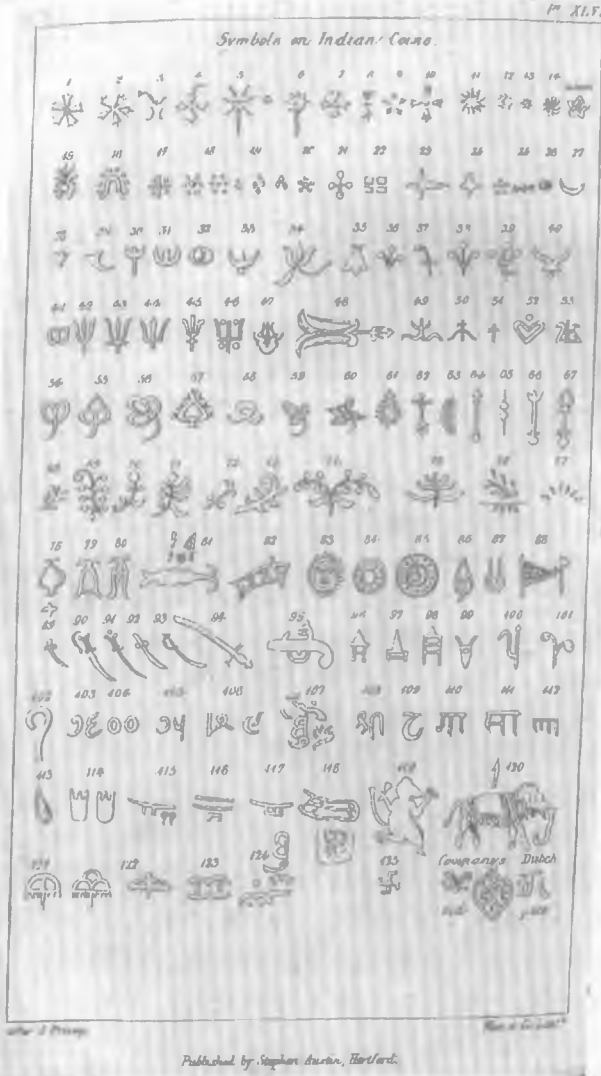 Symbols on Indian Coins.
1 2 3 4 5 6 7 8 9 10 11 12 13 14
15 16 17 18 19 20 21 22 23
27
34 35 36 37 38 39 40
41 42 43 44 45 46 47 48 49 50 51 52 53
54 55 56 57 58 59 60 61 62 63 64 65 66 67
78 79 80 81 82 83 84 85 86 87 88
89 90 91 92 93 94 95 96 97 98 99 100 101
102 103 104 105 106 107 108 109 110 111 112
113 114 115 116 117 118 119 120
121 122 123 124 125 Companys Dutch
Published by Stephen Austin, Hertford.